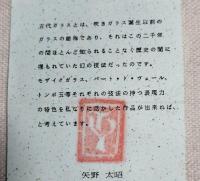 古代ガラスとは、吹きガラス誕生以前の
ガラスの総称であり、それはこの二千年
の間ほとんど知られることなく歴史の闇に
埋もれていた幻の技法だったのです。
モザイクガラス、パート・ド・ヴェール、
トンボ玉等それぞれの技法の持つ表現力
の特色を私なりに活かした作品が出来れば、
と考えています。
矢野 太昭